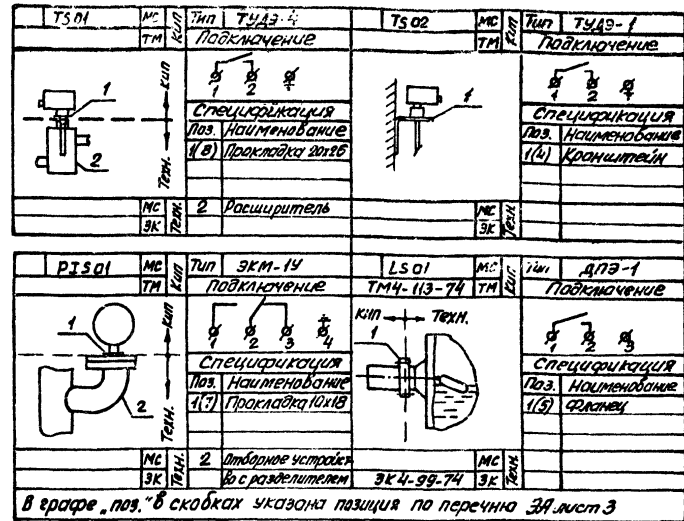 TS01 МС КИП Тип ТУДЭ-4
ТМ Подключение
1 2
Спецификация
Поз. Наименование
1(8) Прокладка 20x26
КИП
Техн.
1
2
МС Техн. 2 Расширитель
ЭК
TS02 МС КИП Тип ТУДЭ-1
ТМ Подключение
1 2
Спецификация
Поз. Наименование
1(4) Кронштейн
1
МС Техн.
ЭК
PIS01 МС КИП Тип ЭКМ-1У
ТМ Подключение
1 2 3 4
Спецификация
Поз. Наименование
1(7) Прокладка 10x18
КИП
Техн.
1
2
МС Техн. 2 Отборное устройст
ЭК во с разделителем
LS01 МС КИП Тип ДПЭ-1
ТМ4-113-74 ТМ Подключение
КИП Техн.
1
1 2 3
Спецификация
Поз. Наименование
1(5) Фланец
МС Техн.
ЭК4-99-74 ЭК
В графе „поз." в скобках указана позиция по перечню ЭА лист 3